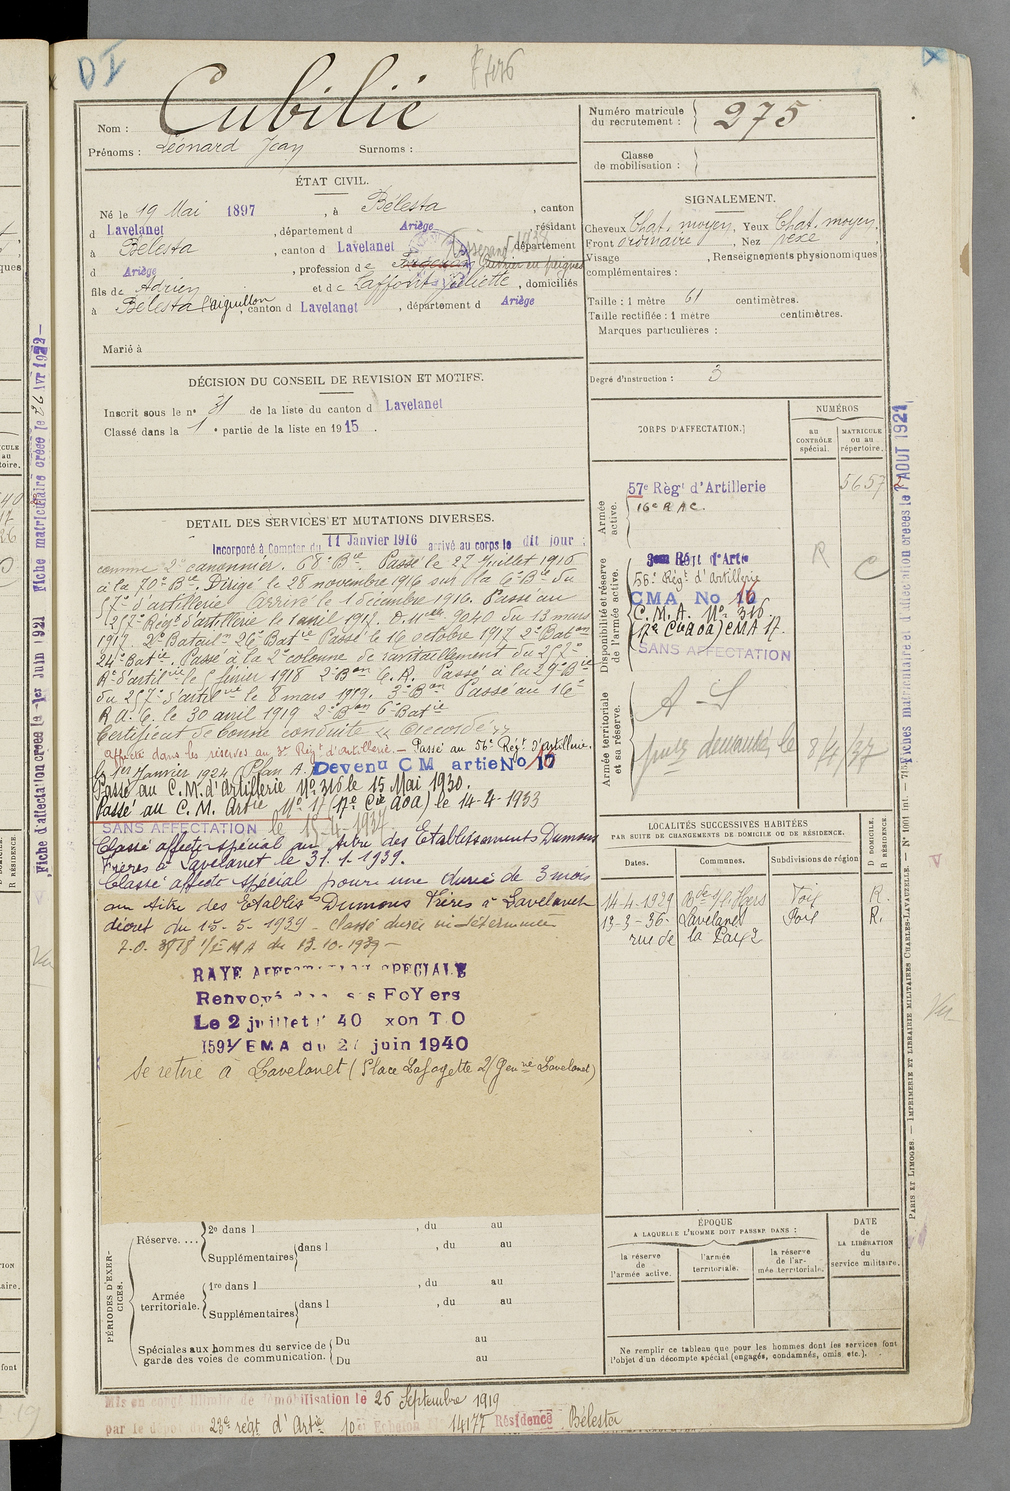 D I
F 476
Nom : Cubilié
Prénoms : Léonard Jean Surnoms :
Numéro matricule du recrutement : 275
Classe de mobilisation :
ÉTAT CIVIL.
Né le 19 Mai 1897, à Bélesta, canton
d Lavelanet, département d Ariège, résidant
à Bélesta, canton d Lavelanet, département
d Ariège, profession de Forgeron Ouvrier en peignes
fils de Adrien et de Laffont Juliette, domiciliés
à Bélesta l'aiguillon, canton d Lavelanet, département d Ariège
Marié à
SIGNALEMENT.
Cheveux Chat. moyen, Yeux Chat. moyen,
Front ordinaire, Nez vexe,
Visage , Renseignements physionomiques
complémentaires :
Taille : 1 mètre 61 centimètres.
Taille rectifiée : 1 mètre centimètres.
Marques particulières :
Degré d'instruction : 3
DÉCISION DU CONSEIL DE REVISION ET MOTIFS.
Inscrit sous le n° 31 de la liste du canton d Lavelanet
Classé dans la 1e partie de la liste en 1915.
DÉTAIL DES SERVICES ET MUTATIONS DIVERSES.
Incorporé à Compter du 11 Janvier 1916 arrivé au corps le dit jour
comme 2e canonnier. 68e Bie. Passé le 27 Juillet 1916
à la 70e Bie. Dirigé le 28 novembre 1916 sur la 6e Bie du
57e d'artillerie Arrivé le 1 décembre 1916. Passé au
257e Régt d'artillerie le 1 avril 1917. O. Mlle 9040 du 13 mars
1917. 2e Batailn 26e Batie Passé le 16 octobre 1917 2e Baton
24e Batie. Passé à la 2e colonne de ravitaillement du 257e
Rt d'artie le février 1918 2e Bon C. R. Passé à la 29e Bie
du 257e d'artie le 8 mars 1919. 3e Bon Passé au 16e
R. A. C. le 30 avril 1919 2e Bon 6e Batie
Certificat de bonne conduite "Accordé"
Affecté dans les réserves au 3e Régt d'artillerie. — Passé au 56e Régt d'artillerie.
le 1er Janvier 1924 (Plan A.) Devenu C M artie No 16
Passé au C.M. d'Artillerie No 316 le 15 Mai 1930.
Passé au C. M. Artie No 17 (17e Cie aoa) le 14-4-1933
SANS AFFECTATION le 15-4-1937
Classé affecté spécial au titre des Etablissements Dumons
Frères à Lavelanet le 31.1.1939.
Classé affecté spécial pour une durée de 3 mois
au titre des Etablists Dumons Frères à Lavelanet
décret du 15-5-1939 - Classé durée indéterminée
1/EMA du 13.10.1939 —
RAYE AFFECTATION SPECIALE
Renvoyé dans ses FoYers
Le 2 juillet 1940 xon T O
1591/EMA du 2 juin 1940
Se retire à Lavelanet (Place Lafayette 2) Genie Lavelanet)
CORPS D'AFFECTATION.
NUMÉROS
au contrôle spécial.
matricule ou au répertoire.
Armée active.
57e Régt d'Artillerie
5657
16e R A C.
Disponibilité et réserve de l'armée active.
3eme Régt d'Artie
56e Régt d'Artillerie
CMA No 16
C. M. A. No 316.
(17e Cie aoa) CMA 17.
SANS AFFECTATION
R
C
Armée territoriale et sa réserve.
A - S
demandé le 8/4/37
LOCALITÉS SUCCESSIVES HABITÉES
PAR SUITE DE CHANGEMENTS DE DOMICILE OU DE RÉSIDENCE.
Dates. Communes. Subdivisions de région
D DOMICILE.
R RÉSIDENCE.
14-4-1929 Foix R.
13-3-36- Lavelanet Foix R.
rue de la Paix 2
PÉRIODES D'EXERCICES.
Réserve....
2e dans l , du au
Supplémentaires dans l , du au
Armée territoriale.
1re dans l , du au
Supplémentaires dans l , du au
Spéciales aux hommes du service de garde des voies de communication.
Du au
Du au
ÉPOQUE
A LAQUELLE L'HOMME DOIT PASSER DANS :
la réserve de l'armée active.
l'armée territoriale.
la réserve de l'armée territoriale.
DATE de LA LIBÉRATION du service militaire.
Ne remplir ce tableau que pour les hommes dont les services font
l'objet d'un décompte spécial (engagés, condamnés, omis etc.).
Mis en congé illimité de démobilisation le 25 Septembre 1919
par le dépôt du 23e régt d'Artie 10e Echelon No 14177 Résidence Bélesta
Fiche d'affectation créée le -1er Juin 1921 Fiche matriculaire créée le 26 Avr 1922—
Fiches matriculaire et d'affectation créées le 1 AOUT 1921
PARIS ET LIMOGES. — IMPRIMERIE ET LIBRAIRIE MILITAIRES CHARLES-LAVAUZELLE. — N° 1001